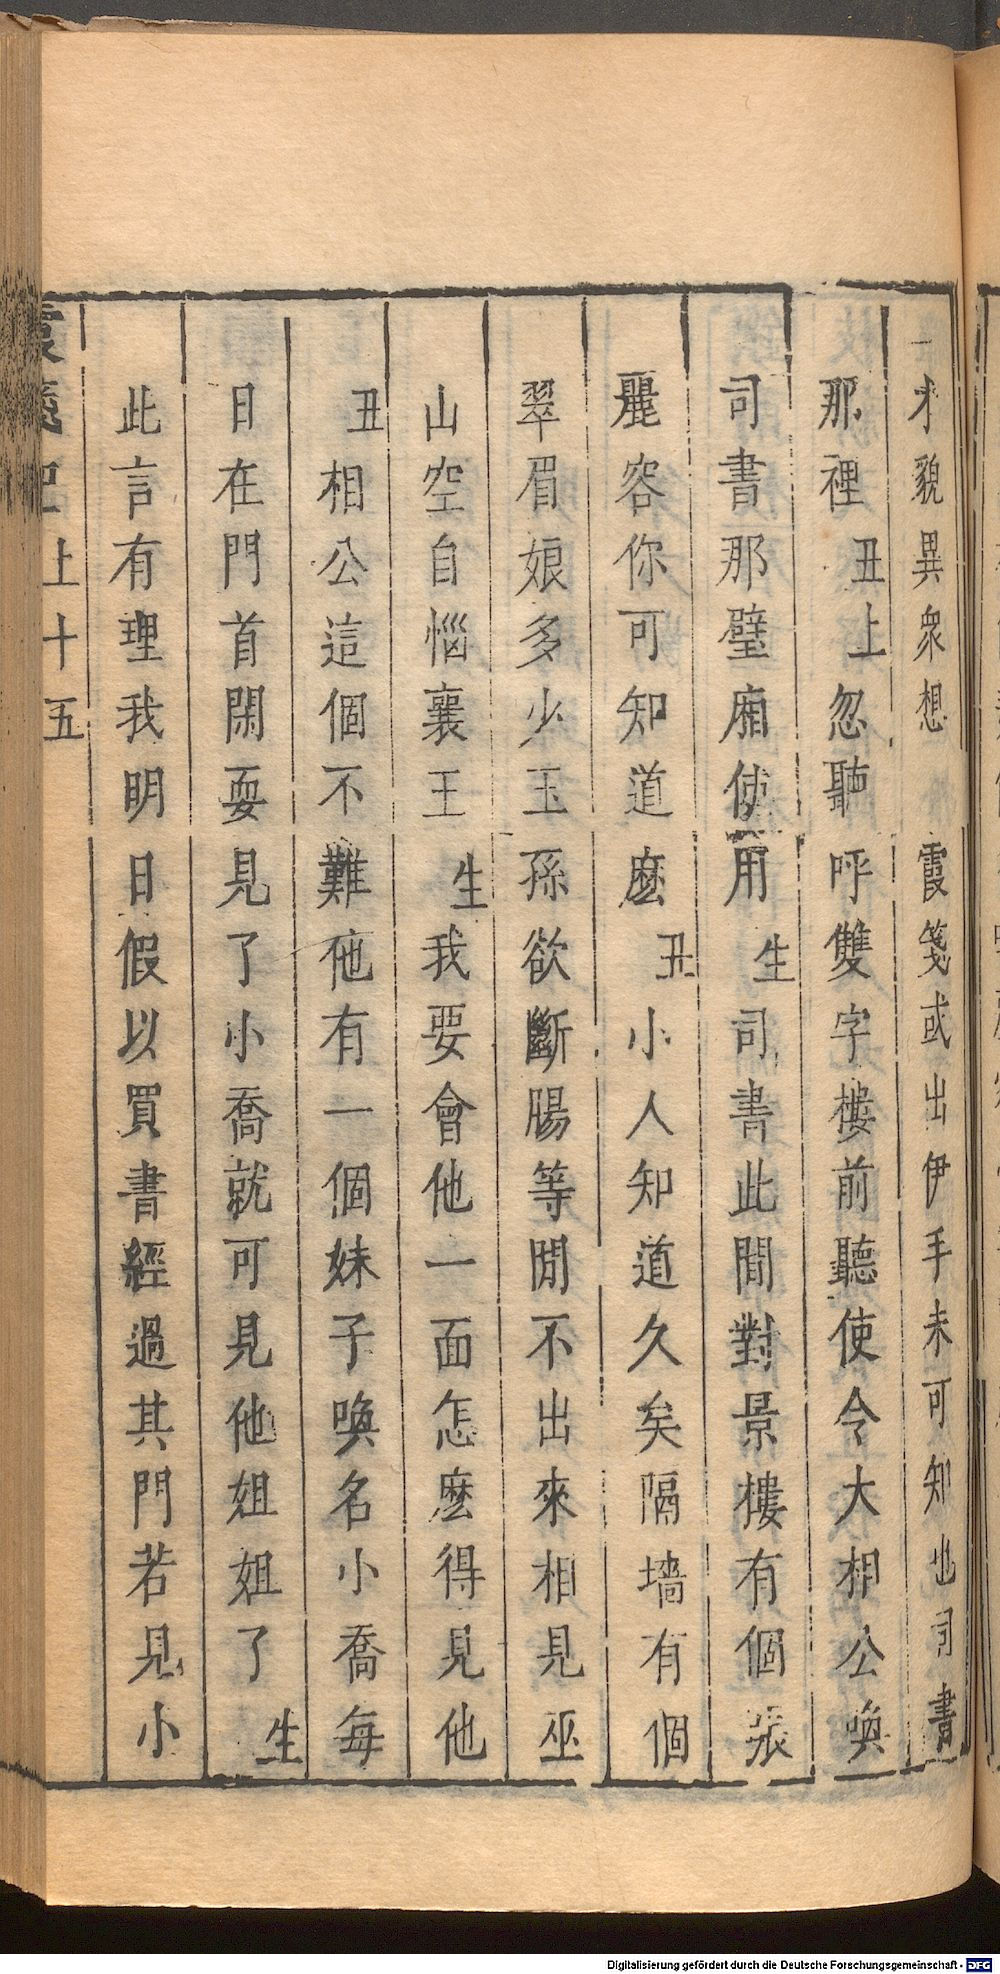 才貌異衆想霞箋或出伊手未可知也司書
那裡丑上忽聽呼雙字樓前聽使令大相公喚
司書那壁廂使用生司書此間對景樓有個張
麗容你可知知道麽丑小人知道久矣隔墻有個
翠眉娘多少玉孫欲斷腸等閒不出來相見巫
山空自惱襄王生我要會他一面怎麽得見他
丑相公這個不難他有一個妹子喚名小喬每
日在門首閑耍見了小喬就可見他姐姐了生
此言有理我明日假以買書經過其門若見小
霞箋記上十五
Digitalisierung gefördert durch die Deutsche Forschungsgemeinschaft - DFG